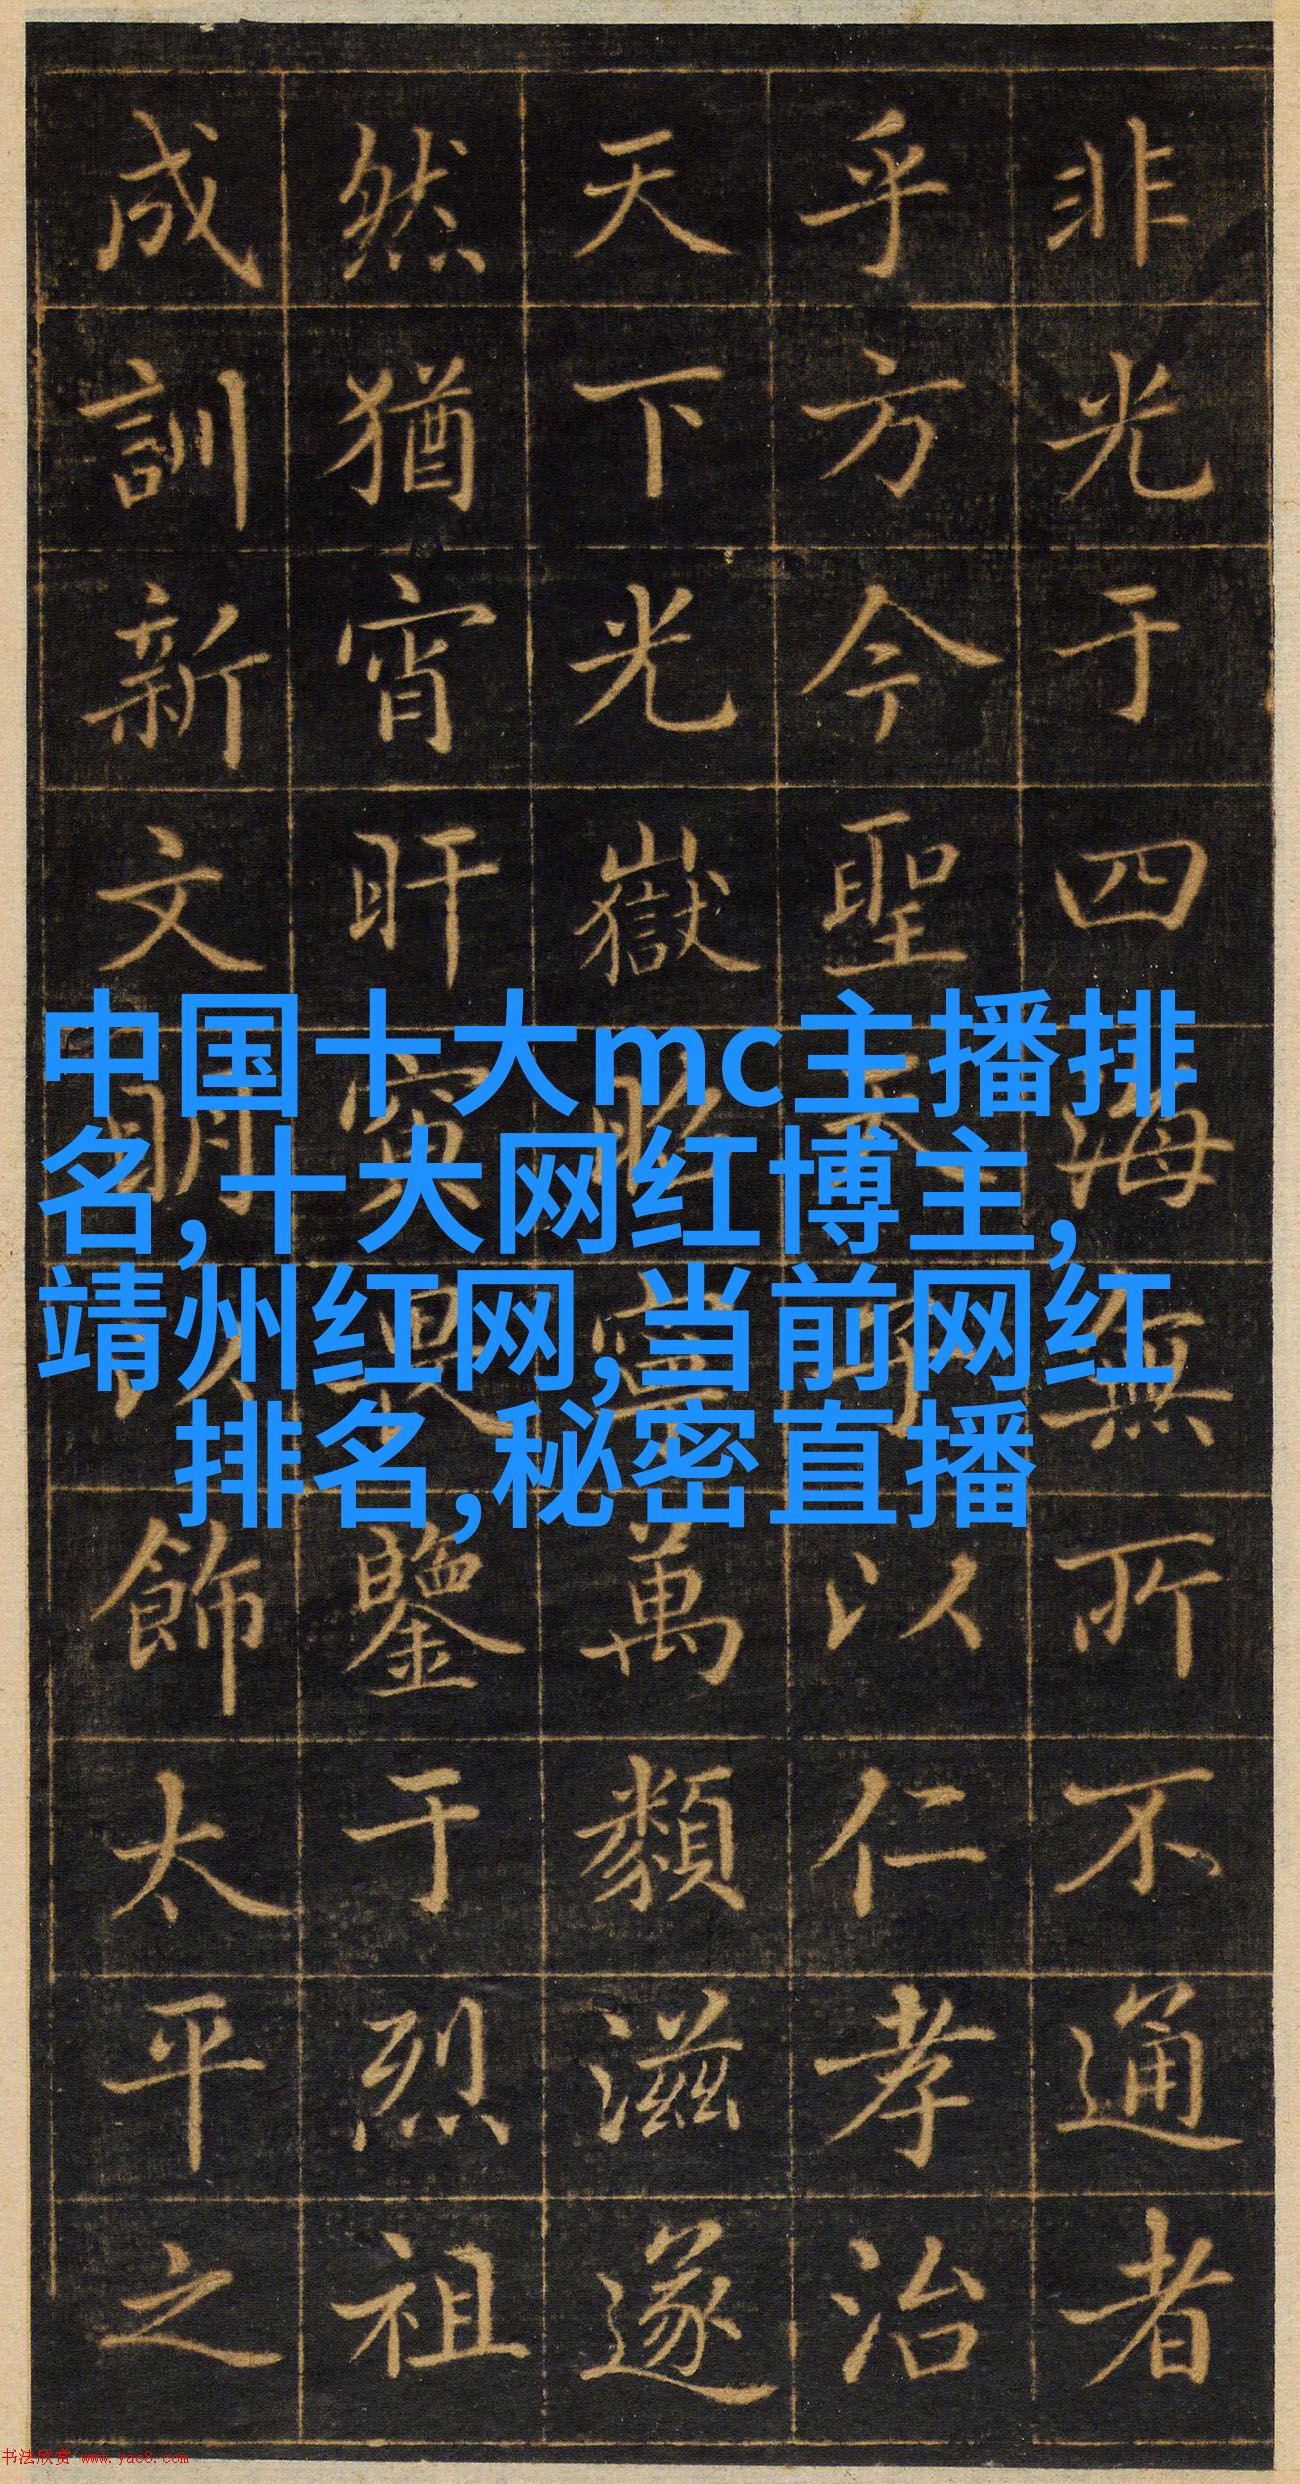 非光于四海無所不通者
乎方今聖天子以仁孝治
天下光嶽昭寧萬類滋遂
然猶宵旰寅畏鑒于烈祖
成訓新文明以飾太平之
中国十大mc主播排
名,十大网红博主,
靖州红网,当前网红
排名,秘密直播
书法欣赏 www.yac8.com